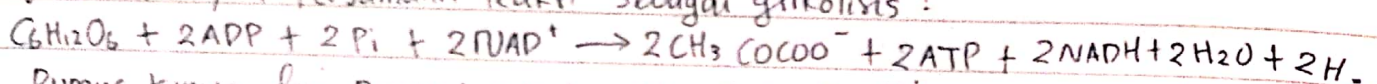 reaksi sebagai glikolisis :
C6H12O6 + 2ADP + 2Pi + 2NAD⁺ → 2CH3COCOO⁻ + 2ATP + 2NADH + 2H2O + 2H.